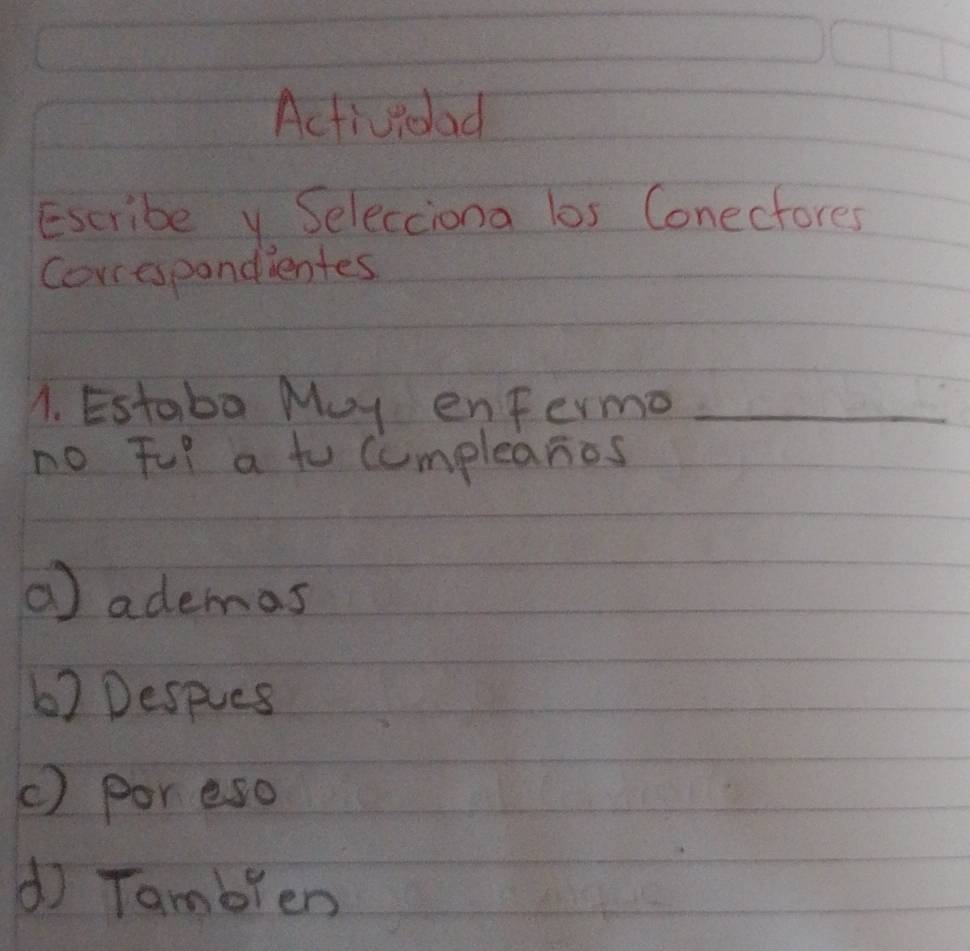 Actividad
Escribe y Selecciona los Conectores
Correspondientes
1. Estaba Muy enfermo ________
no Fui a tu Cumpleaños
a) ademas
b) Despues
c) por eso
d) Tambien